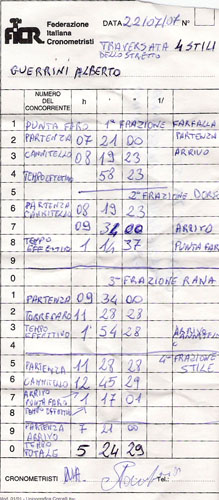 FICr Federazione
Italiana
Cronometristi
DATA 22/07/07 N°
TRAVERSATA 4 STILI
DELLO STRETTO
GUERRINI ALBERTO
NUMERO
DEL
CONCORRENTE
h ' " 1/
1 PUNTA FARO 1ª FRAZIONE FARFALLA
2 PARTENZA 07 21 00 PARTENZA
3 CANNITELLO 08 19 23 ARRIVO
4 TEMPO EFFETTIVO 58 23
5 2ª FRAZIONE DORSO
6 PARTENZA CANNITELLO 08 19 23
7 09 34 00 ARRIVO
8 TEMPO EFFETTIVO 1 14 37 PUNTA FARO
9
0 3ª FRAZIONE RANA
1 PARTENZA 09 34 00
2 TORRE FARO 11 28 28
3 TEMPO EFFETTIVO 1 54 28 ARRIVO
4
5 PARTENZA 11 28 28 4ª FRAZIONE
6 CANNITELLO 12 45 29 STILE
7 ARRIVO PUNTA FARO 1 17 01
8 TEMPO EFFETTIVO
9 PARTENZA ARRIVO 7 21 00
0 TEMPO TOTALE 5 24 29
CRONOMETRISTI Tel.: